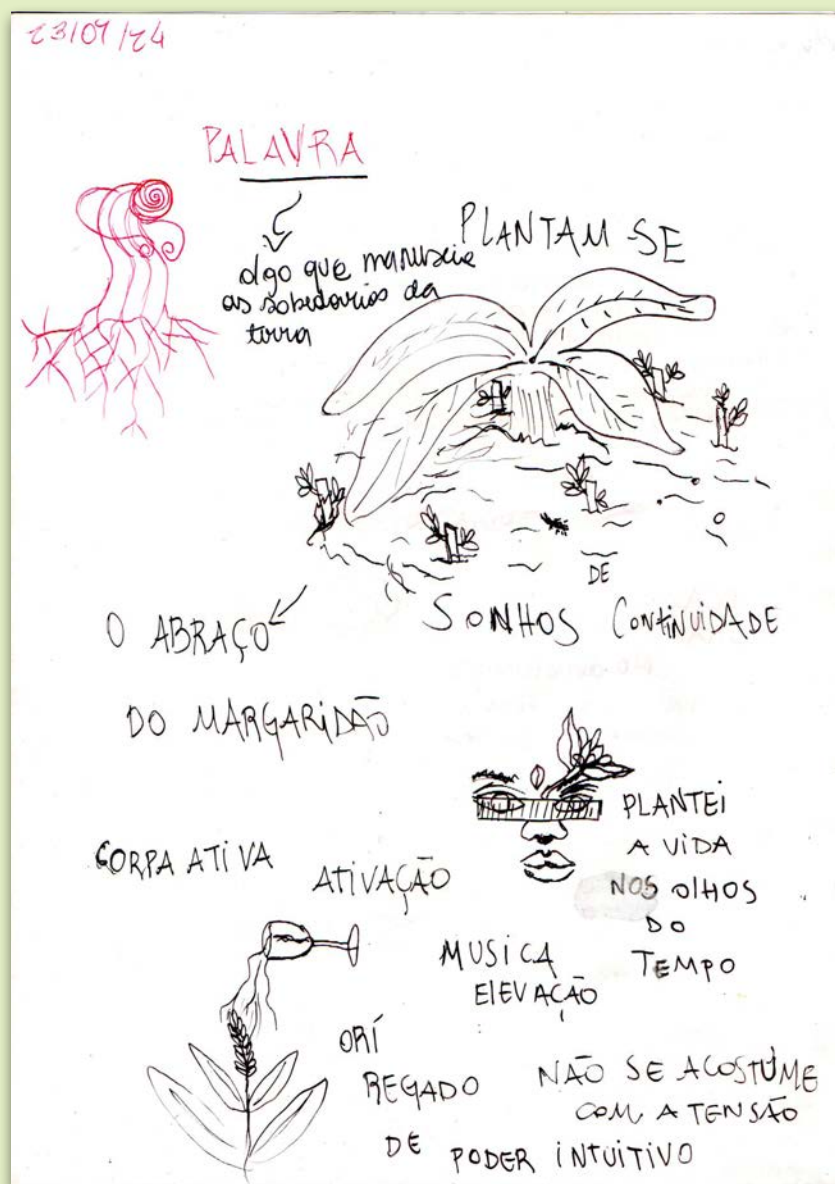 23/07/24
PALAVRA
algo que manuseia
as sabedorias da
terra
PLANTAM-SE
DE
SONHOS CONTINUIDADE
O ABRAÇO
DO MARGARIDÃO
PLANTEI
A VIDA
NOS OLHOS
DO
TEMPO
CORPA ATIVA
ATIVAÇÃO
MUSICA
ELEVAÇÃO
ORÍ
REGADO
DE PODER INTUITIVO
NÃO SE ACOSTUME
COM A TENSÃO